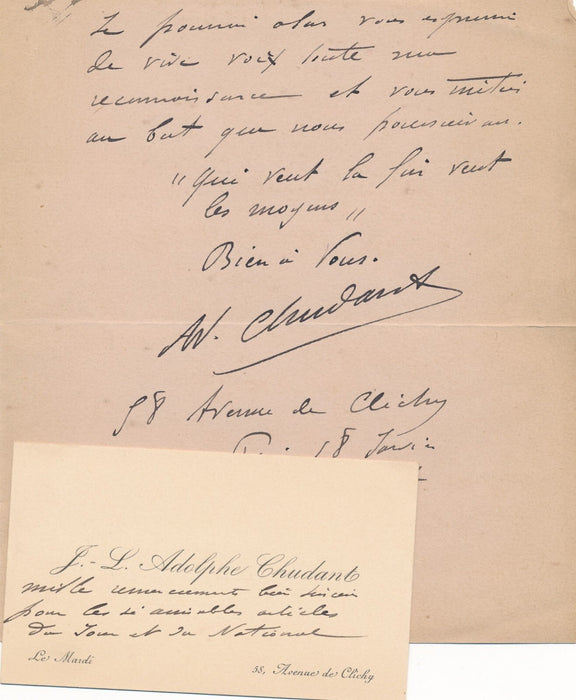 Je pourrai alors vous exprimer
de vive voix toute ma
reconnaissance et vous initier
au but que nous poursuivons.
"Qui veut la fin veut
les moyens"
Bien à Vous.
Ad. Chudant
58 Avenue de Clichy
18 Janvier
J.-L. Adolphe Chudant
mille remerciements bien sincères
pour les si aimables articles
du Jour et du National
Le Mardi
58, Avenue de Clichy